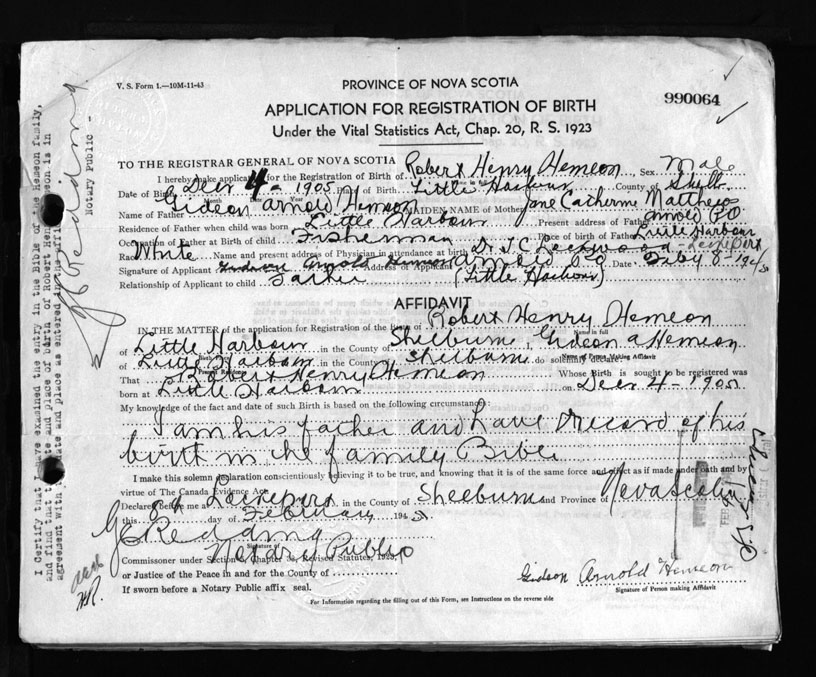 V. S. Form 1.—10M-11-43
PROVINCE OF NOVA SCOTIA
990064
APPLICATION FOR REGISTRATION OF BIRTH
Under the Vital Statistics Act, Chap. 20, R. S. 1923
TO THE REGISTRAR GENERAL OF NOVA SCOTIA
I hereby make application for the Registration of Birth of Robert Henry Hemeon Sex Male
Date of Birth Decr 4 - 1905 Place of Birth Little Harbour County of Shelb
Name of Father Gideon Arnold Hemeon MAIDEN NAME of Mother Jane Catherine Matthews
Residence of Father when child was born Little Harbour Present address of Father Arnold P.O
Occupation of Father at Birth of child Fisherman Place of birth of Father Little Harbour
Race White Name and present address of Physician in attendance at birth Dr. Lockeport
Signature of Applicant Gideon Arnold Hemeon Address of Applicant Arnold P.O Date Feby 8 - 194
Relationship of Applicant to child Father (Little Harbour)
AFFIDAVIT
IN THE MATTER of the application for Registration of the Birth of Robert Henry Hemeon
Name in full
of Little Harbour in the County of Shelburne I, Gideon A Hemeon
Name of Person Making Affidavit
of Little Harbour in the County of Shelburne do solemnly declare:
Present Residence
That Robert Henry Hemeon Whose Birth is sought to be registered was
born at Little Harbour on Decr 4 - 1905
My knowledge of the fact and date of such Birth is based on the following circumstances:
I am his father and have record of his
birth in the family Bible
I make this solemn declaration conscientiously believing it to be true, and knowing that it is of the same force and effect as if made under oath and by
virtue of The Canada Evidence Act.
Declared before me at Lockeport in the County of Shelburne and Province of Nova Scotia
this day of February 194
Notary Public
Commissioner under Section Chapter Revised Statutes, 1923,
or Justice of the Peace in and for the County of
If sworn before a Notary Public affix seal.
Gideon Arnold Hemeon
Signature of Person making Affidavit
For Information regarding the filling out of this Form, see Instructions on the reverse side
I Certify that I have examined the entry in the Bible of the Hemeon family,
and find that the date and place of birth of Robert Henry Hemeon is in
agreement with the date and place as entered in the
Notary Public -